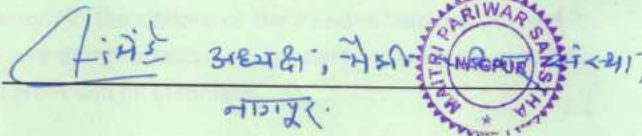 अध्यक्ष, मैत्री परिवार संस्था
नागपूर.
MAITRI PARIWAR SANSTHA
NAGPUR